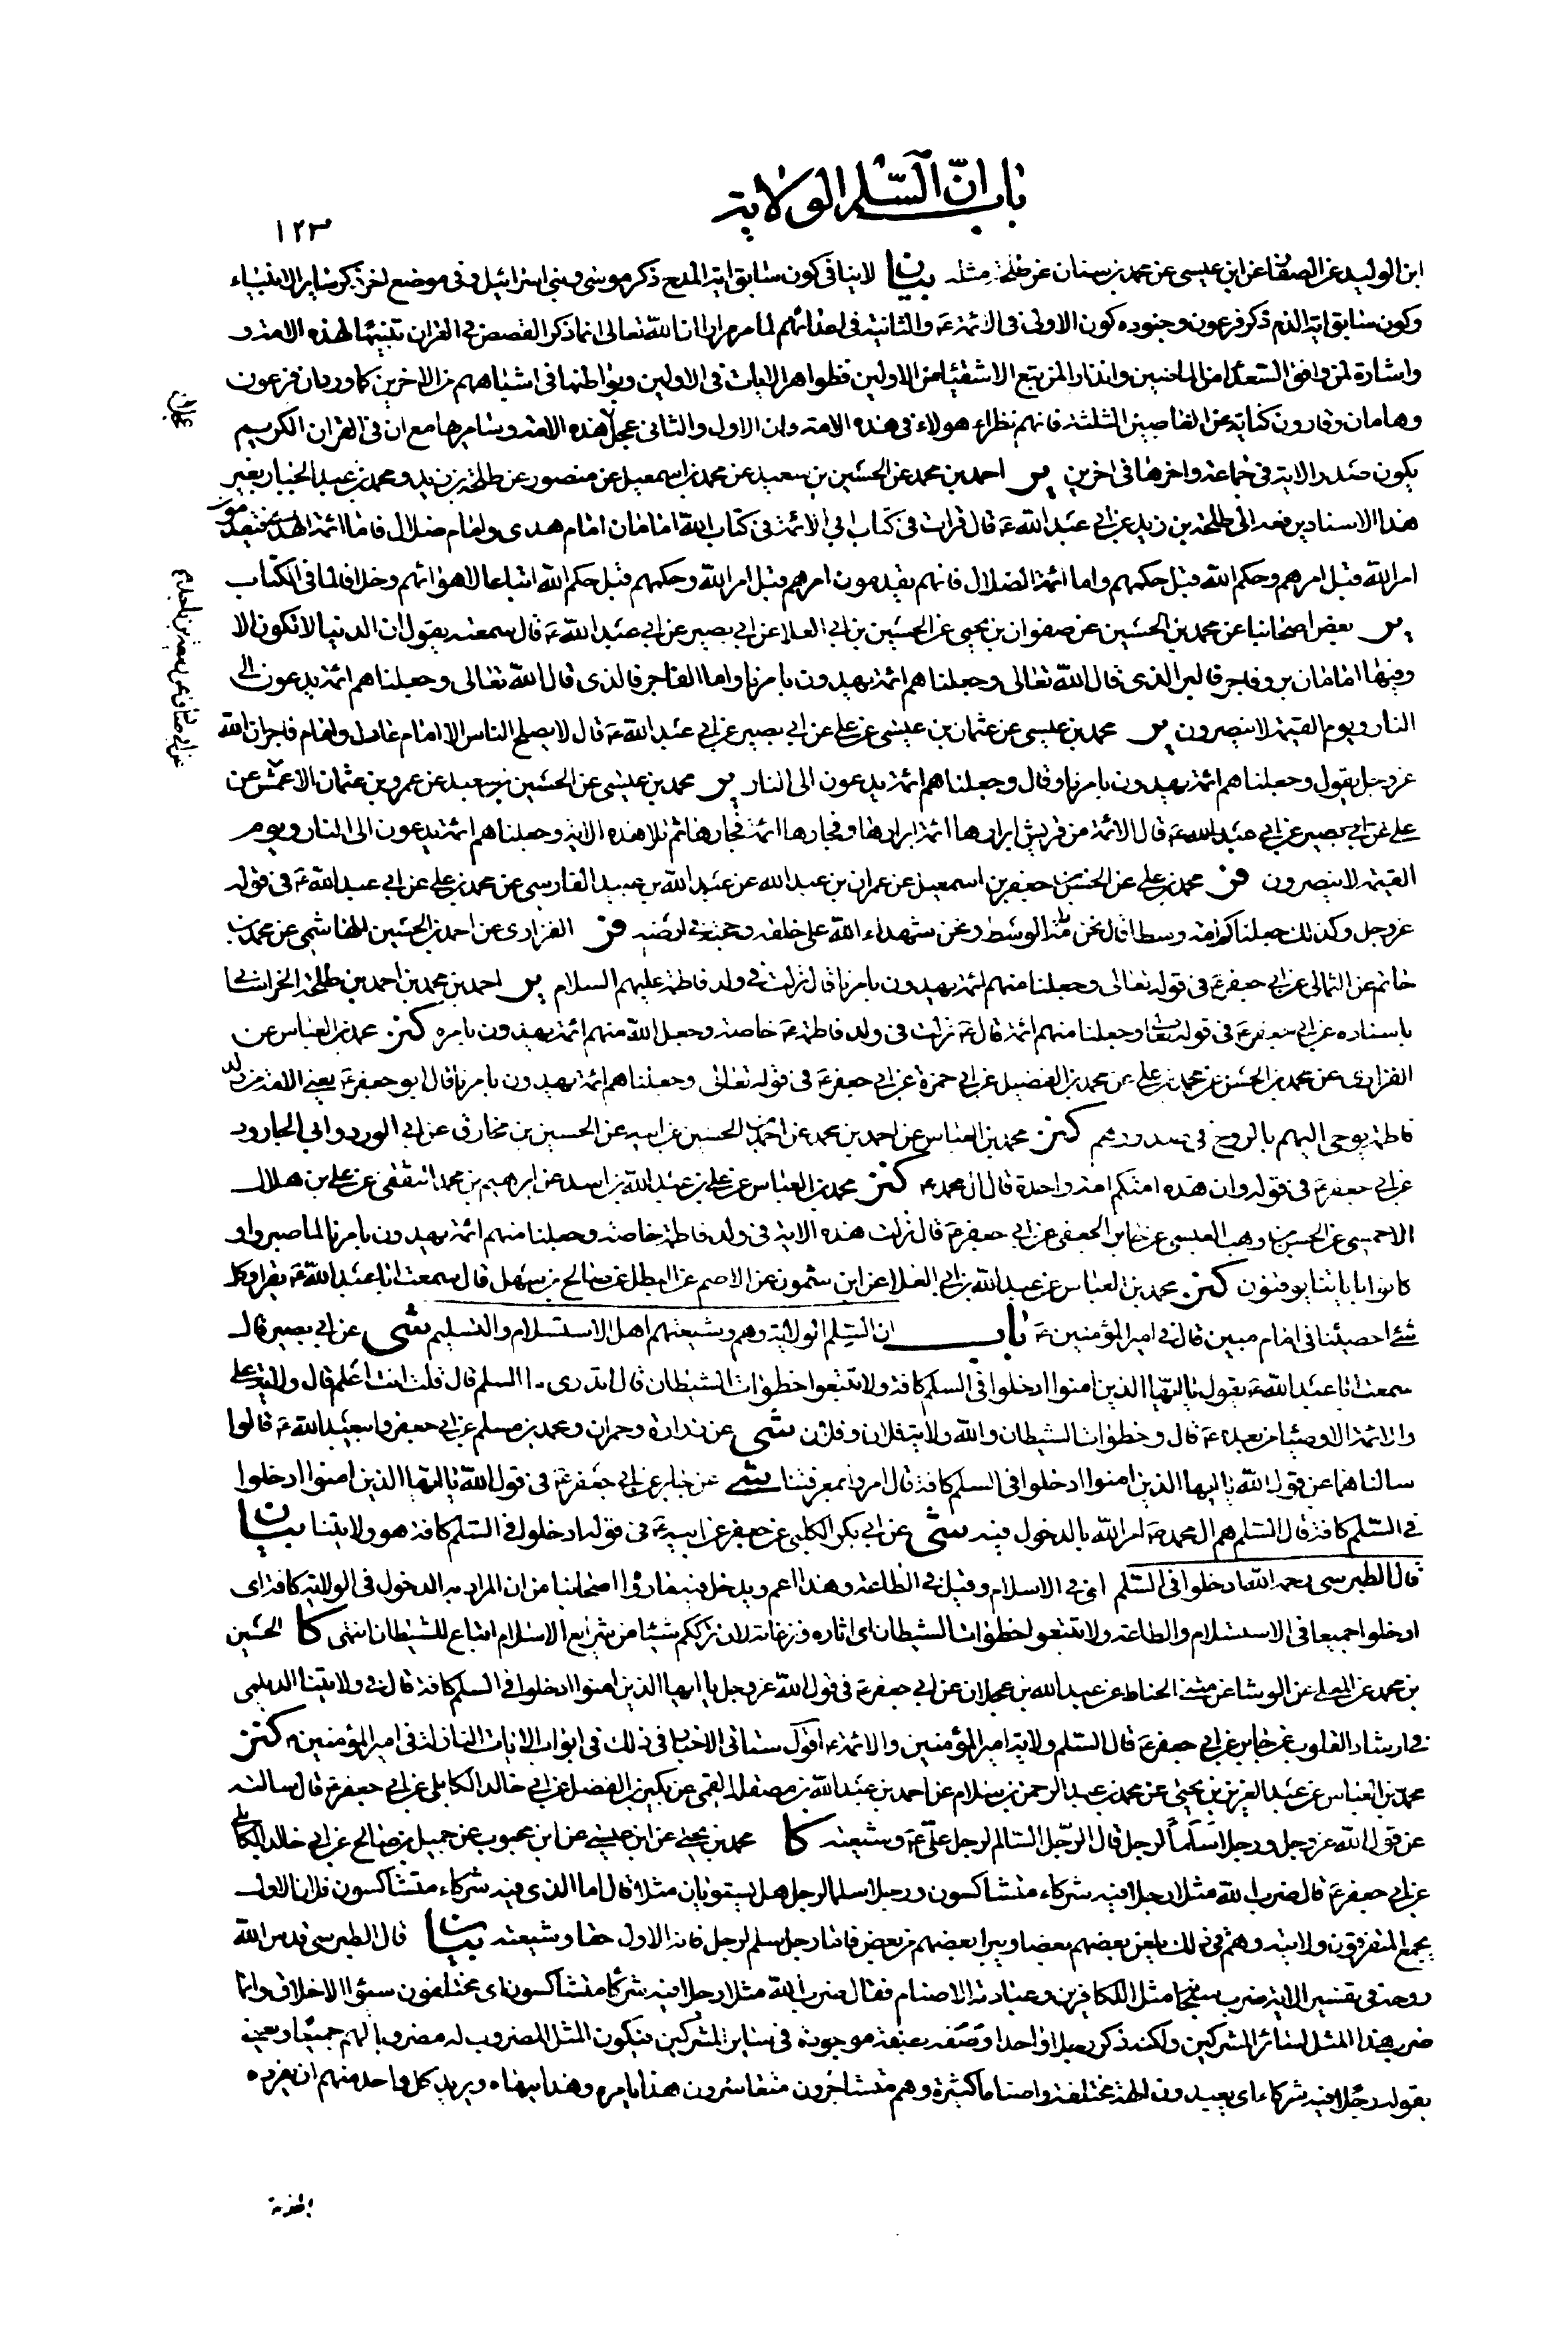 باب انّ السّلم الولاية
١٢٣
ابن الوليد عن الصفار عن ابن عيسى عن محمد بن سنان عن طلحة مثله بيان لا ينافى كون سابق اية المدح ذكر موسى وبنى اسرائيل وفى موضع اخر ذكر ساير الانبياء
وكون سابق اية الذم ذكر فرعون وجنوده كون الاولى فى الائمة ع والثانية فى اعدائهم لما مر مرارا ان الله تعالى انما ذكر القصص فى القران تنبيها لهذه الامة و
واشارة لمن وافق السعداء من الماضين وانذارا لمن يتبع الاشقياء من الاولين فظواهر الايات فى الاولين وبواطنها فى اشباههم من الاخرين كما ورد ان فرعون
وهامان وقارون كناية عن الغاصبين الثلثة فانهم نظراء هولاء فى هذه الامة وان الاول والثانى عجل هذه الامة وسامريها مع ان فى القران الكريم
يكون صدر الاية فى جماعة واخرها فى اخرين ير احمد بن محمد عن الحسين بن سعيد عن محمد بن اسمعيل عن منصور عن طلحة بن زيد ومحمد بن عبد الجبار بغير
هذا الاسناد يرفعه الى طلحة بن زيد عن ابى عبد الله ع قال قرات فى كتاب ابى الائمة فى كتاب الله امامان امام هدى وامام ضلال فاما ائمة الهدى فيقدمون
امر الله قبل امرهم وحكم الله قبل حكمهم واما ائمة الضلال فانهم يقدمون امرهم قبل امر الله وحكمهم قبل حكم الله اتباعا لاهوائهم وخلافا لما فى الكتاب
ير بعض اصحابنا عن محمد بن الحسين عن صفوان بن يحيى عن الحسين بن ابى العلا عن ابى بصير عن ابى عبد الله ع قال سمعته يقول ان الدنيا لا تكون الا
وفيها امامان بر وفاجر فالبر الذى قال الله تعالى وجعلناهم ائمة يهدون بامرنا واما الفاجر فالذى قال الله تعالى وجعلناهم ائمة يدعون الى
النار ويوم القيمة لا ينصرون ير محمد بن عيسى عن عثمان بن عيسى عن على عن ابى بصير عن ابى عبد الله ع قال لا يصلح الناس الا امام عادل وامام فاجر ان الله
عز وجل يقول وجعلناهم ائمة يهدون بامرنا وقال وجعلناهم ائمة يدعون الى النار ير محمد بن عيسى عن الحسين بن سعيد عن عمرو بن عثمان الاعمش عن
على عن ابى بصير عن ابى عبد الله ع قال الائمة من قريش ابرارها ائمة ابرارها وفجارها ائمة فجارها ثم تلا هذه الاية وجعلناهم ائمة يدعون الى النار ويوم
القيمة لا ينصرون فر محمد بن على عن الحسن بن جعفر بن اسمعيل عن عمران بن عبد الله عن عبد الله بن عبيد الفارسى عن محمد بن على عن ابى عبد الله ع فى قوله
عز وجل وكذلك جعلناكم امة وسطا قال نحن الامة الوسط ونحن شهداء الله على خلقه وحجته فى ارضه فر الفزارى عن احمد بن الحسين الهاشمى عن محمد بن
حاتم عن الثمالى عن ابى جعفر ع فى قوله تعالى وجعلنا منهم ائمة يهدون بامرنا قال نزلت فى ولد فاطمة عليهم السلام ير احمد بن محمد بن احمد بن طلحة الخراسانى
باسناده عن ابى جعفر ع فى قوله تعالى وجعلنا منهم ائمة قال ع نزلت فى ولد فاطمة ع خاصة وجعل الله منهم ائمة يهدون بامره كنز محمد بن العباس عن
الفزارى عن محمد بن الحسن عن محمد بن على عن محمد بن الفضيل عن ابى حمزة عن ابى جعفر ع فى قوله تعالى وجعلناهم ائمة يهدون بامرنا قال ابو جعفر ع يعنى الائمة من ولد
فاطمة يوحى اليهم بالروح فى صدورهم كنز محمد بن العباس عن احمد بن محمد عن احمد بن الحسين عن ابيه عن الحسين بن مخارق عن ابى الورد وابى الجارود
عن ابى جعفر ع فى قوله وان هذه امتكم امة واحدة قال ال محمد ع كنز محمد بن العباس عن على بن عبد الله بن اسد عن ابرهيم بن محمد الثقفى عن على بن هلال
الاحمسى عن الحسن بن وهب العبسى عن جابر الجعفى عن ابى جعفر ع قال نزلت هذه الاية فى ولد فاطمة خاصة وجعلنا منهم ائمة يهدون بامرنا لما صبروا و
كانوا باياتنا يوقنون كنز محمد بن العباس عن عبد الله بن ابى العلا عن ابن شمون عن الاصم عن البطل عن صالح بن سهل قال سمعت ابا عبد الله ع يقرا وكل
شئ احصيناه فى امام مبين قال فى امير المؤمنين ع باب ان السلم الولاية وهم وشيعتهم اهل الاستسلام والتسليم شى عن ابى بصير قال
سمعت ابا عبد الله ع يقول يا ايها الذين امنوا ادخلوا فى السلم كافة ولا تتبعوا خطوات الشيطان قال اتدرى ما السلم قال قلت انت اعلم قال ولاية على
والائمة الاوصياء من بعده ع قال وخطوات الشيطان والله ولاية فلان وفلان شى عن زرارة وحمران ومحمد بن مسلم عن ابى جعفر وابى عبد الله ع قالوا
سالناهما عن قول الله يا ايها الذين امنوا ادخلوا فى السلم كافة قال امروا بمعرفتنا شى عن جابر عن ابى جعفر ع فى قول الله يا ايها الذين امنوا ادخلوا
فى السّلم كافة قال السّلم هم ال محمد ع امر الله بالدخول فيه شى عن ابى بكر الكلبى عن جعفر عن ابيه ع فى قوله ادخلوا فى السّلم كافة هو ولايتنا بيان
قال الطبرسى رحمه الله ادخلوا فى السّلم اى فى الاسلام وقيل فى الطاعة وهذا اعم ويدخل فيه ما رواه اصحابنا من ان المراد به الدخول فى الولاية كافة اى
ادخلوا جميعا فى الاستسلام والطاعة ولا تتبعوا خطوات الشيطان اى اثاره ونزغاته لان ترككم شيئا من شرايع الاسلام اتباع للشيطان انتهى كا الحسين
بن محمد عن المعلى عن الوشا عن مثنى الحناط عن عبد الله بن عجلان عن ابى جعفر ع فى قول الله عز وجل يا ايها الذين امنوا ادخلوا فى السلم كافة قال فى ولايتنا الديلمى
فى ارشاد القلوب عن جابر عن ابى جعفر ع قال السّلم ولاية امير المؤمنين والائمة ع اقول ستاتى الاخبار فى ذلك فى ابواب الايات النازلة فى امير المؤمنين ع كنز
محمد بن العباس عن عبد العزيز بن يحيى عن محمد بن عبد الرحمن بن سلام عن احمد بن عبد الله بن مصقلة القمى عن بكير بن الفضل عن ابى خالد الكابلى عن ابى جعفر ع قال سالته
عن قول الله عز وجل ورجلا سَلَماً لرجل قال الرّجل السّالم لرجل علىّ ع وشيعته كا محمد بن يحيى عن ابن عيسى عن ابن محبوب عن جميل بن صالح عن ابى خالد الكابلى
عن ابى جعفر ع قال ضرب الله مثلا رجلا فيه شركاء متشاكسون ورجلا سلما لرجل هل يستويان مثلا قال اما الذى فيه شركاء متشاكسون فلان الاول
يجمع المتفرقون ولايته وهم فى ذلك يلعن بعضهم بعضا ويبرا بعضهم من بعض فاما رجل سلم لرجل فانه الاول حقا وشيعته بيان قال الطبرسى قدس الله
روحه فى تفسير الاية ضرب سبحانه مثلا للكافرين وعبادته الاصنام فقال ضرب الله مثلا رجلا فيه شركاء متشاكسون اى مختلفون سيؤا الاخلاق وانما
ضرب هذا المثل لسائر المشركين ولكنه ذكر رجلا واحدا وصفه بصفة موجودة فى ساير المشركين فيكون المثل المضروب له مضروبا لهم جميعا ويعنى
بقوله رجُلا فيه شركاء اى يعبدون الهة مختلفة واصناما كثيرة وهم متشاجرون متعاسرون هذا يامره وهذا ينهاه ويريد كل واحد منهم ان يفرده
بالخدمة